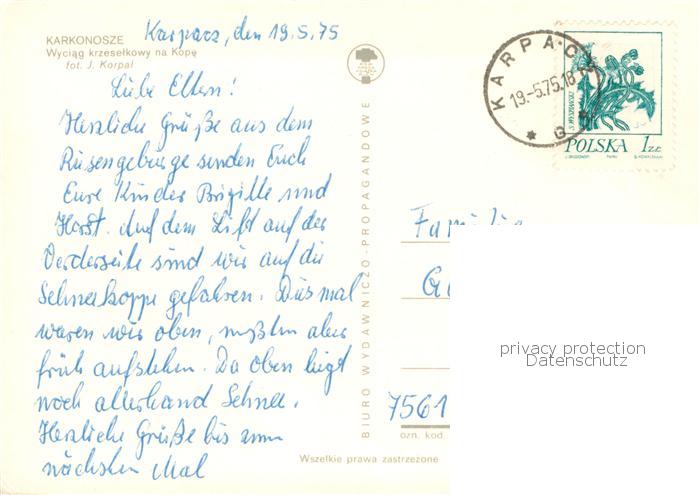 KARKONOSZE
Wyciąg krzesełkowy na Kopę
fot. J. Korpal
Karpacz, den 19.5.75
Liebe Eltern!
Herzliche Grüße aus dem
Riesengebirge senden Euch
Eure Kinder Brigitte und
Horst. Auf dem Lift auf der
Vorderseite sind wir auf die
Schneekoppe gefahren. Diesmal
waren wir oben, mußten aber
früh aufstehen. Da oben liegt
noch allerhand Schnee.
Herzliche Grüße bis zum
nächsten Mal
BIURO WYDAWNICZO-PROPAGANDOWE
KARPACZ
19.-5.75.18
POLSKA 1 ZŁ
Familie
7561
ozn. kod.
Wszelkie prawa zastrzeżone
privacy protection
Datenschutz